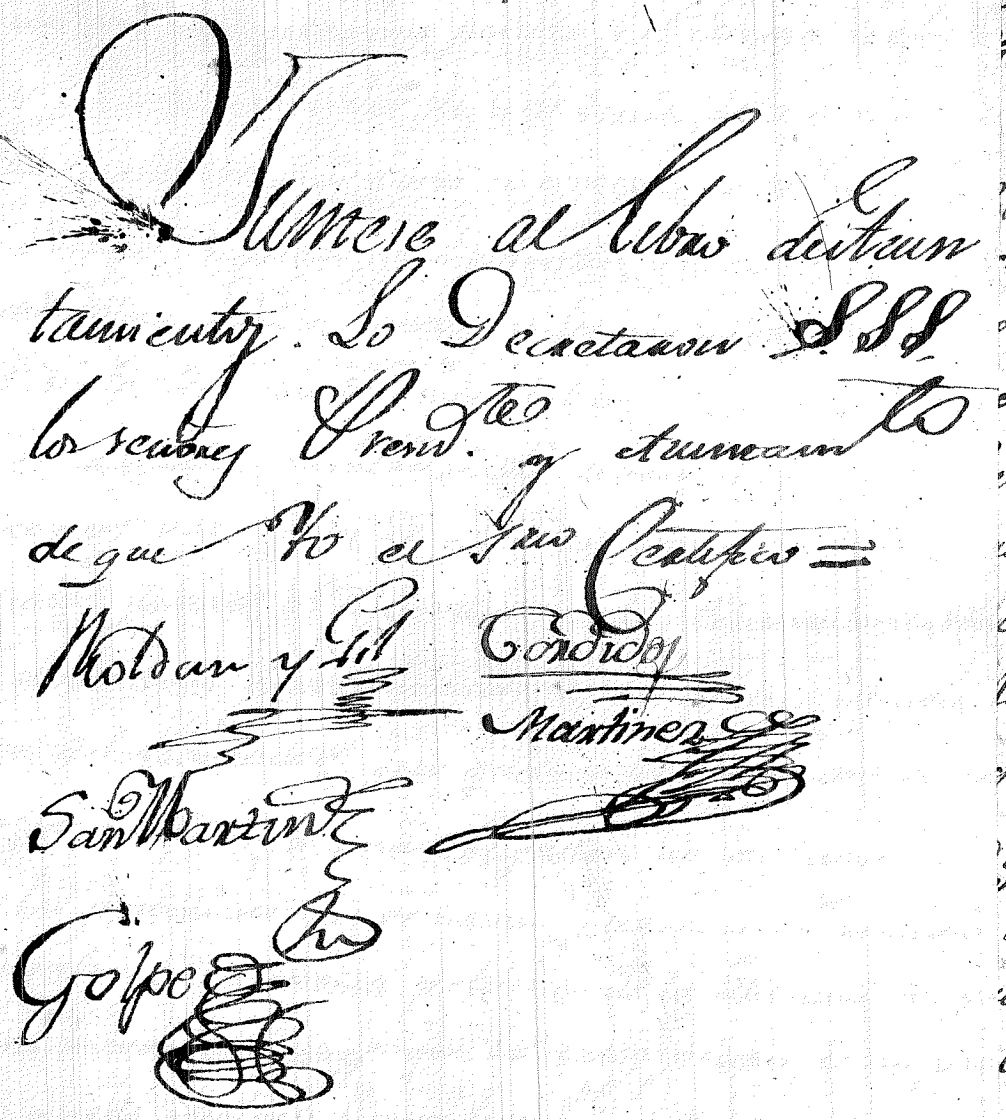 Juntese al libro deitaiun
tamientos. Lo Decretaron SSS
los señores Presid.te y Aiunam.to
de que Yo el Srio Certifico =
Roldan y Gil Cordido,
Martinez
San Martin
Golpe